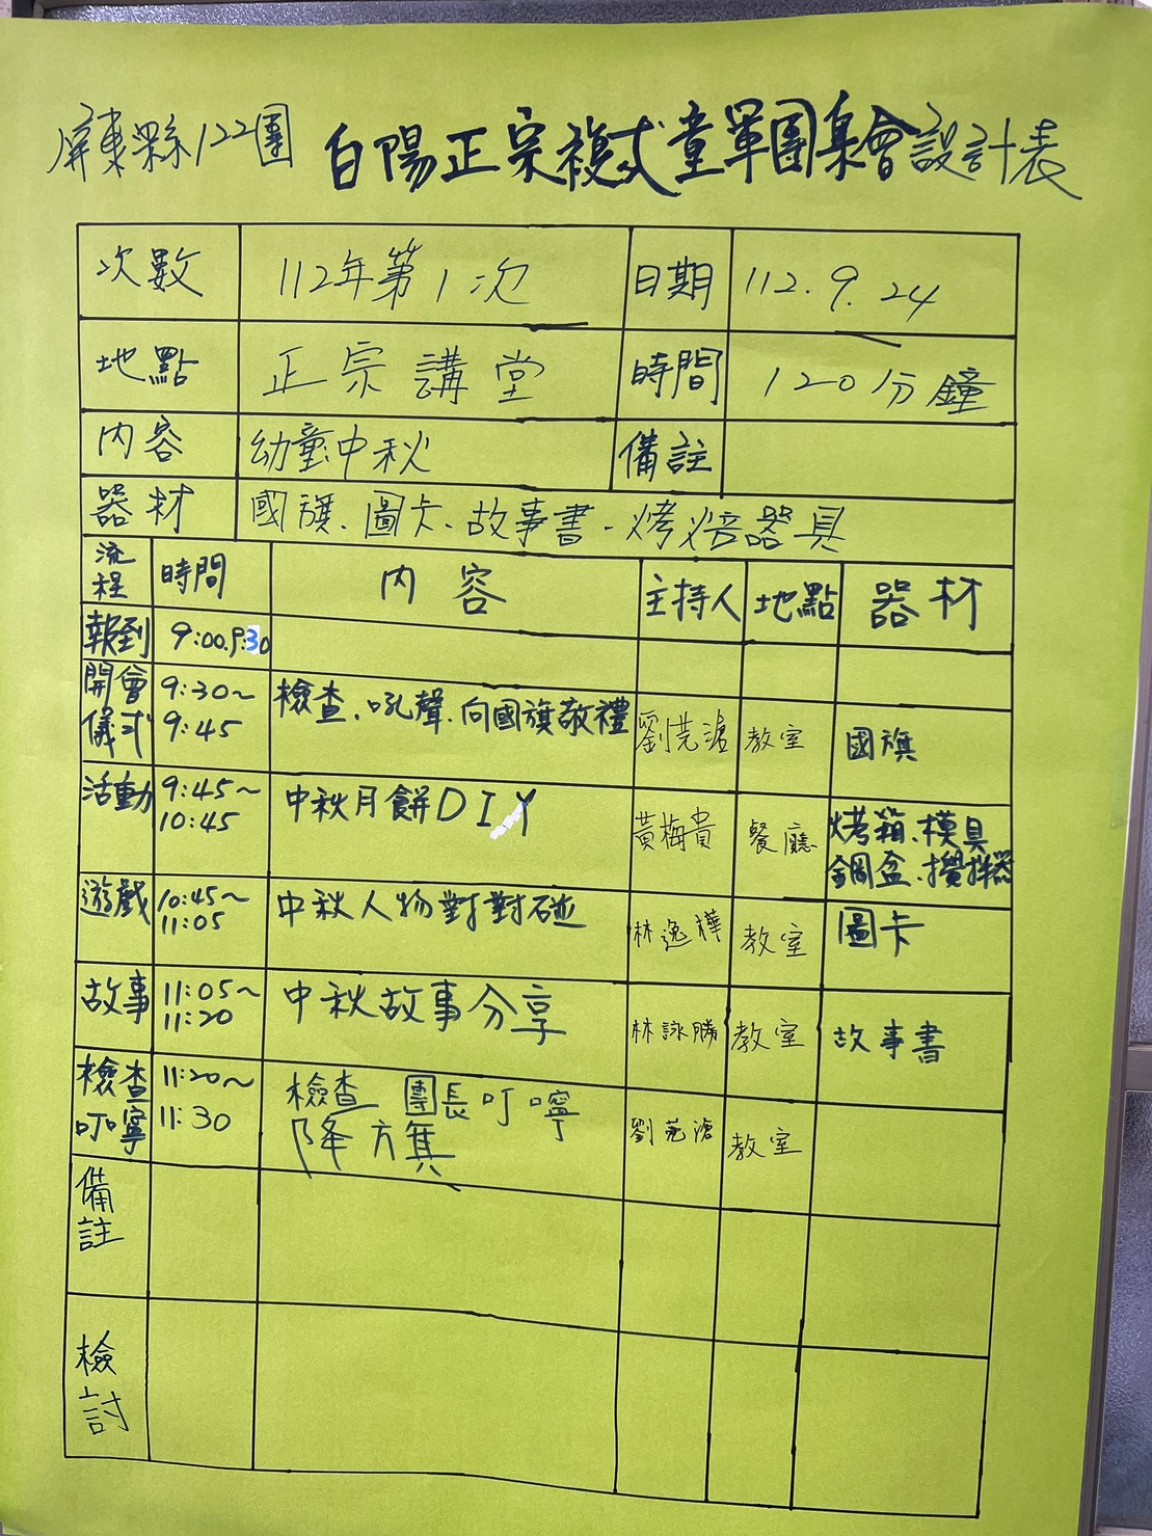 屏東縣122團 白陽正宗複式童軍團集會設計表
次數 112年第1次 日期 112.9.24
地點 正宗講堂 時間 120分鐘
內容 幼童中秋 備註
器材 國旗、圖卡、故事書、烤焙器具
流程 時間 內容 主持人 地點 器材
報到 9:00.9:30
開會儀式 9:30~9:45 檢查、吼聲、向國旗敬禮 教室 國旗
活動 9:45~10:45 中秋月餅DIY 黃梅貴 餐廳 烤箱、模具
鋼盆、攪拌器
遊戲 10:45~11:05 中秋人物對對碰 林逸樺 教室 圖卡
故事 11:05~11:20 中秋故事分享 林詠勝 教室 故事書
檢查叮嚀 11:20~11:30 檢查 團長叮嚀
降旗 教室
備註
檢討